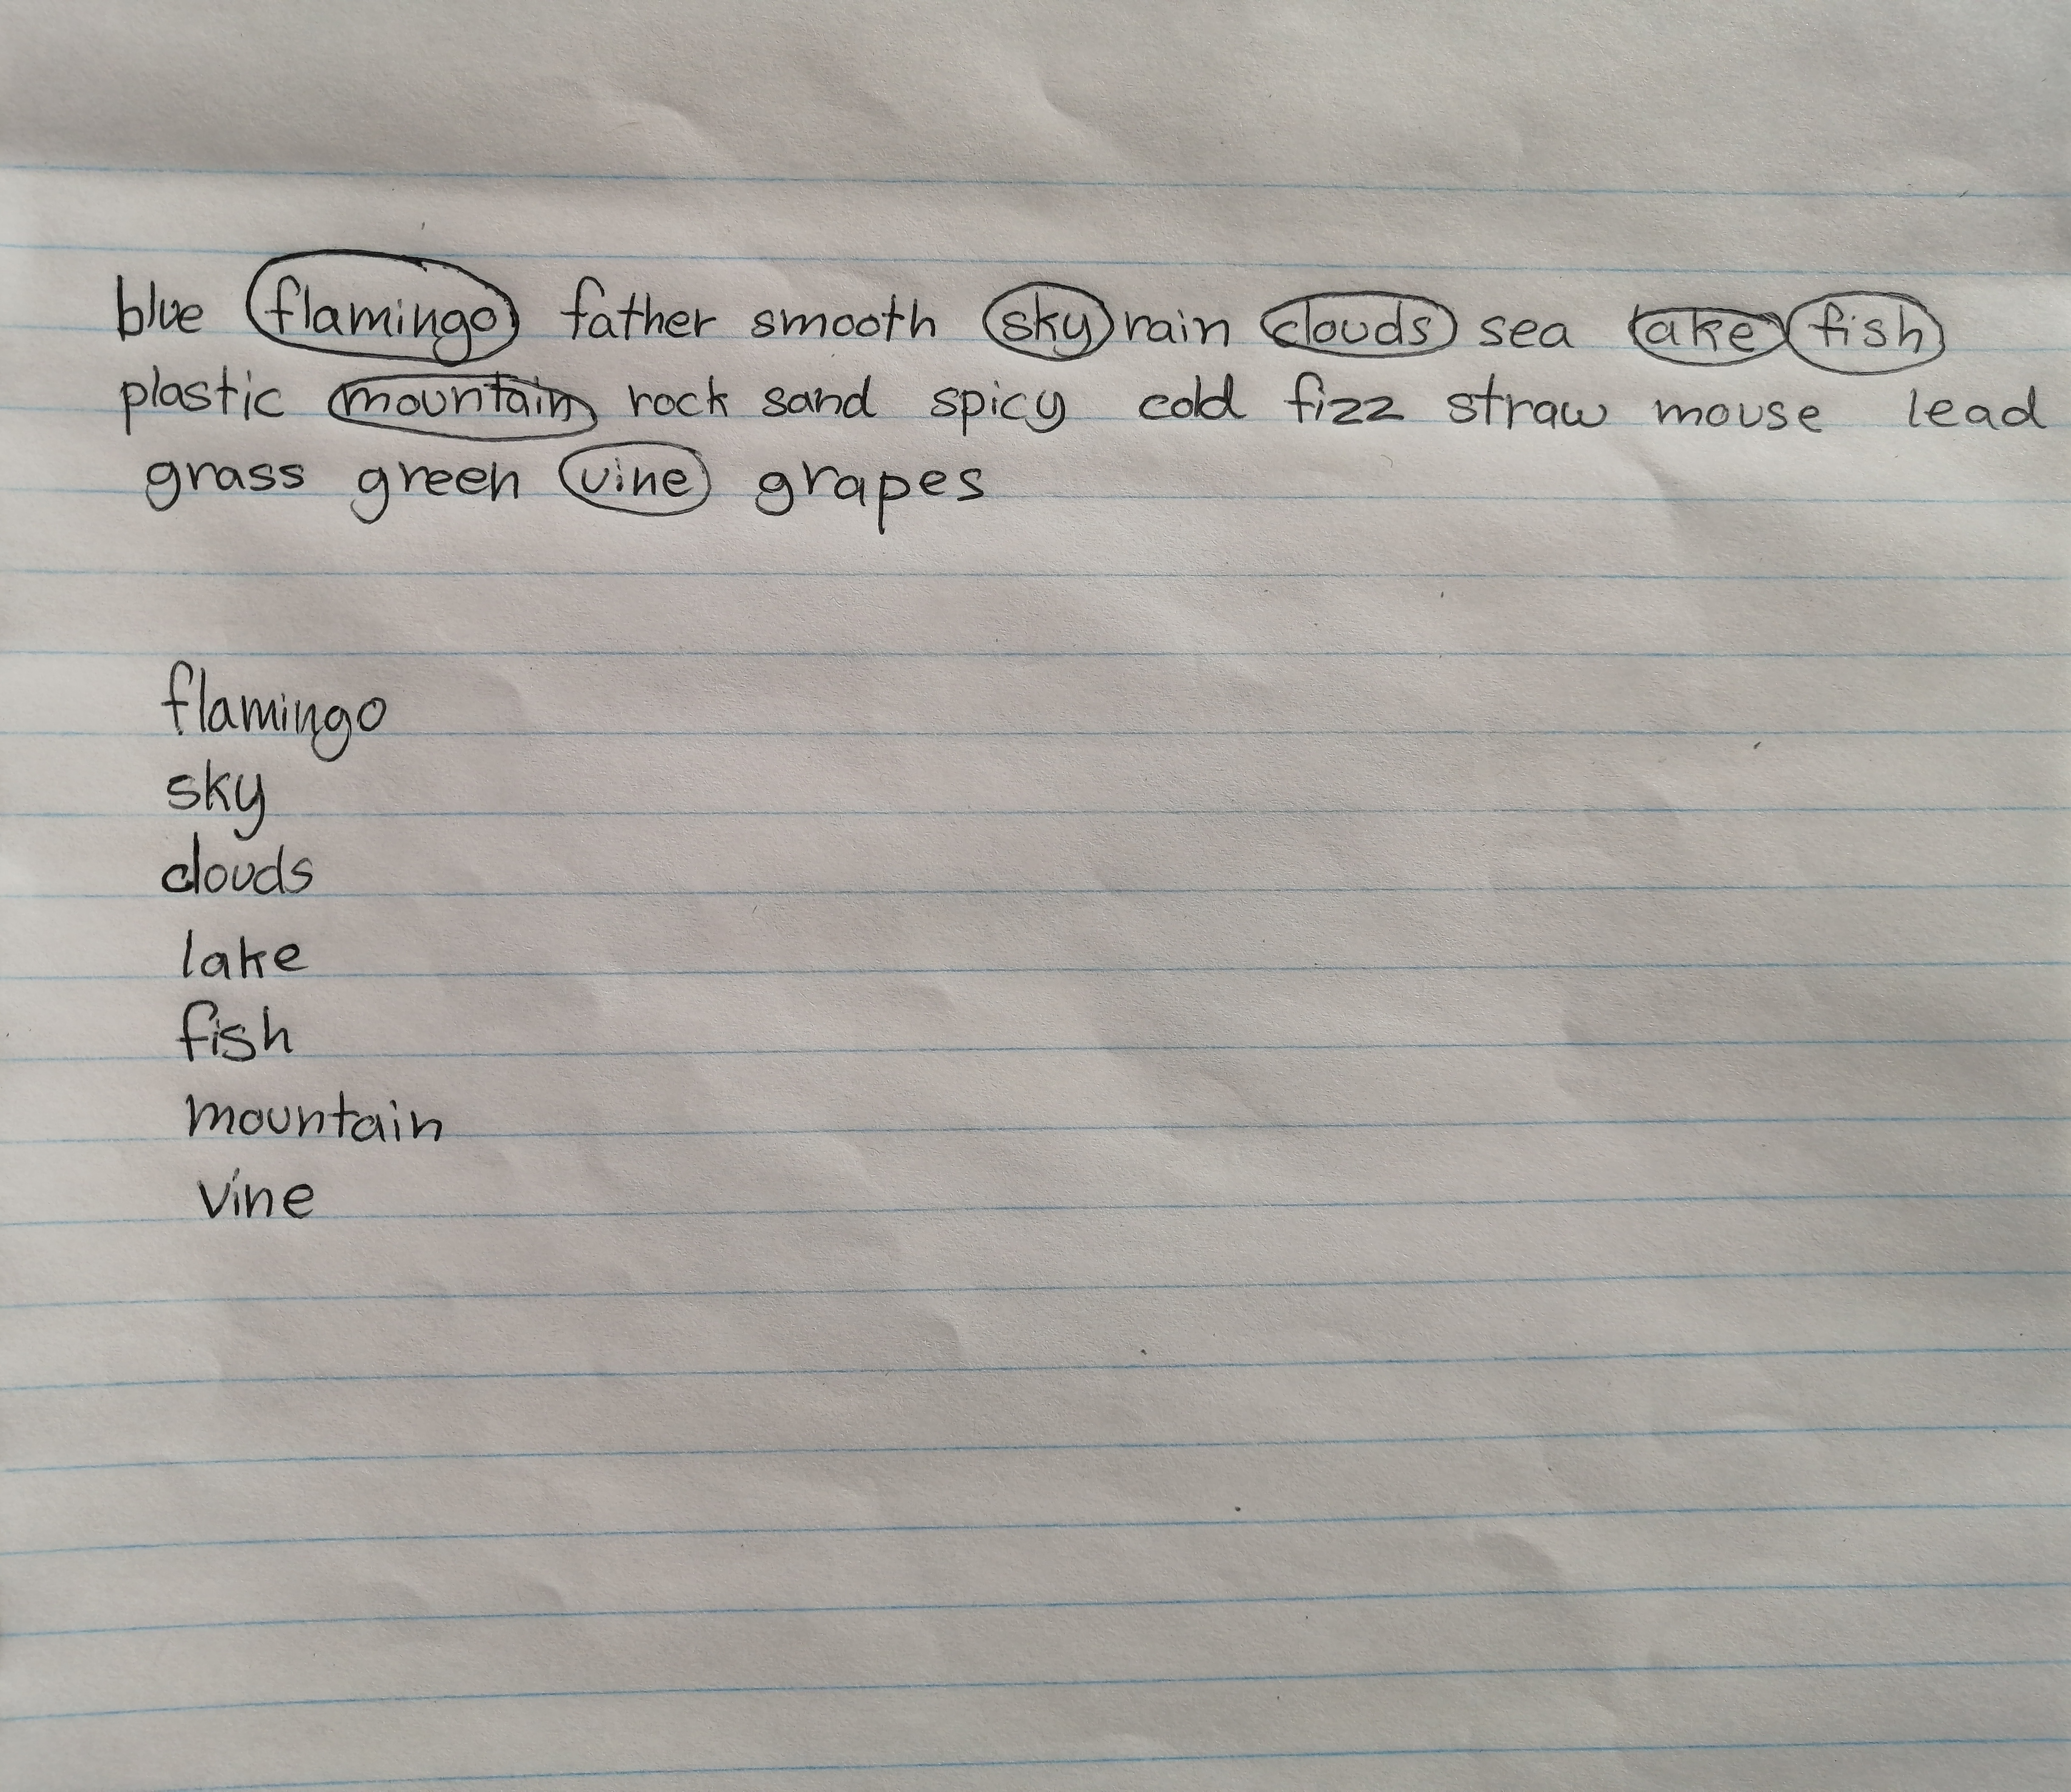 blue flamingo father smooth sky rain clouds sea lake fish
plastic mountain rock sand spicy cold fizz straw mouse lead
grass green vine grapes
flamingo
sky
clouds
lake
fish
mountain
vine